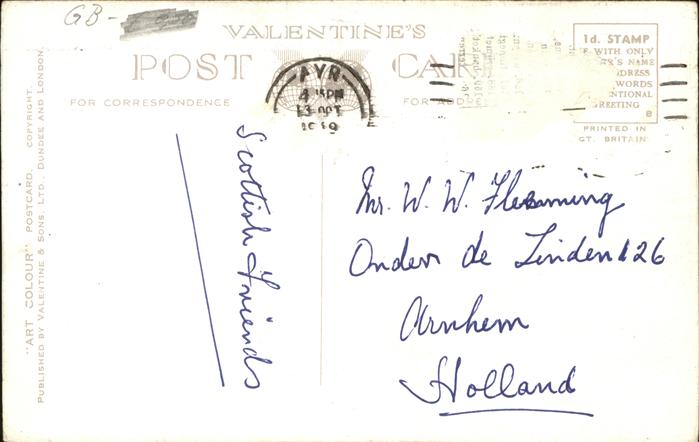 GB -
VALENTINE'S
POST CARD
FOR CORRESPONDENCE
FOR ADDRESS
1d. STAMP
IF WITH ONLY
NAME
ADDRESS
WORDS
GREETING
B
PRINTED IN
GT. BRITAIN
AYR
4 15PM
13 OCT
"ART COLOUR" POSTCARD. COPYRIGHT.
PUBLISHED BY VALENTINE & SONS, LTD., DUNDEE AND LONDON.
Scottish Friends
Mr. W. W. Flemming
Onder de Linden 126
Arnhem
Holland